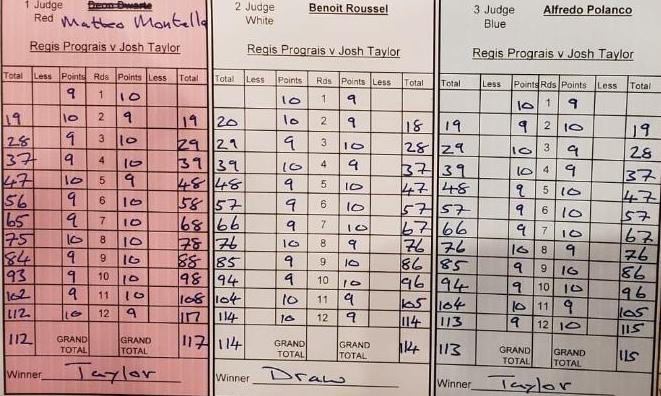 1 Judge
Red Matteo Montella
Regis Prograis v Josh Taylor
Total Less Points Rds Points Less Total
9 1 10
19 10 2 9 19
28 9 3 10 29
37 9 4 10 39
47 10 5 9 48
56 9 6 10 58
65 9 7 10 68
75 10 8 10 78
84 9 9 10 88
93 9 10 10 98
102 9 11 10 108
112 10 12 9 117
112 GRAND GRAND 117
TOTAL TOTAL
Winner Taylor
2 Judge Benoit Roussel
White
Regis Prograis v Josh Taylor
Total Less Points Rds Points Less Total
10 1 9
20 10 2 9 18
29 9 3 10 28
39 10 4 9 37
48 9 5 10 47
57 9 6 10 57
66 9 7 10 67
76 10 8 9 76
85 9 9 10 86
94 9 10 10 96
104 10 11 9 105
114 10 12 9 114
114 GRAND GRAND 114
TOTAL TOTAL
Winner Draw
3 Judge Alfredo Polanco
Blue
Regis Prograis v Josh Taylor
Total Less Points Rds Points Less Total
10 1 9
19 9 2 10 19
29 10 3 9 28
39 10 4 9 37
48 9 5 10 47
57 9 6 10 57
66 9 7 10 67
76 10 8 9 76
85 9 9 10 86
94 9 10 10 96
104 10 11 9 105
113 9 12 10 115
113 GRAND GRAND 115
TOTAL TOTAL
Winner Taylor